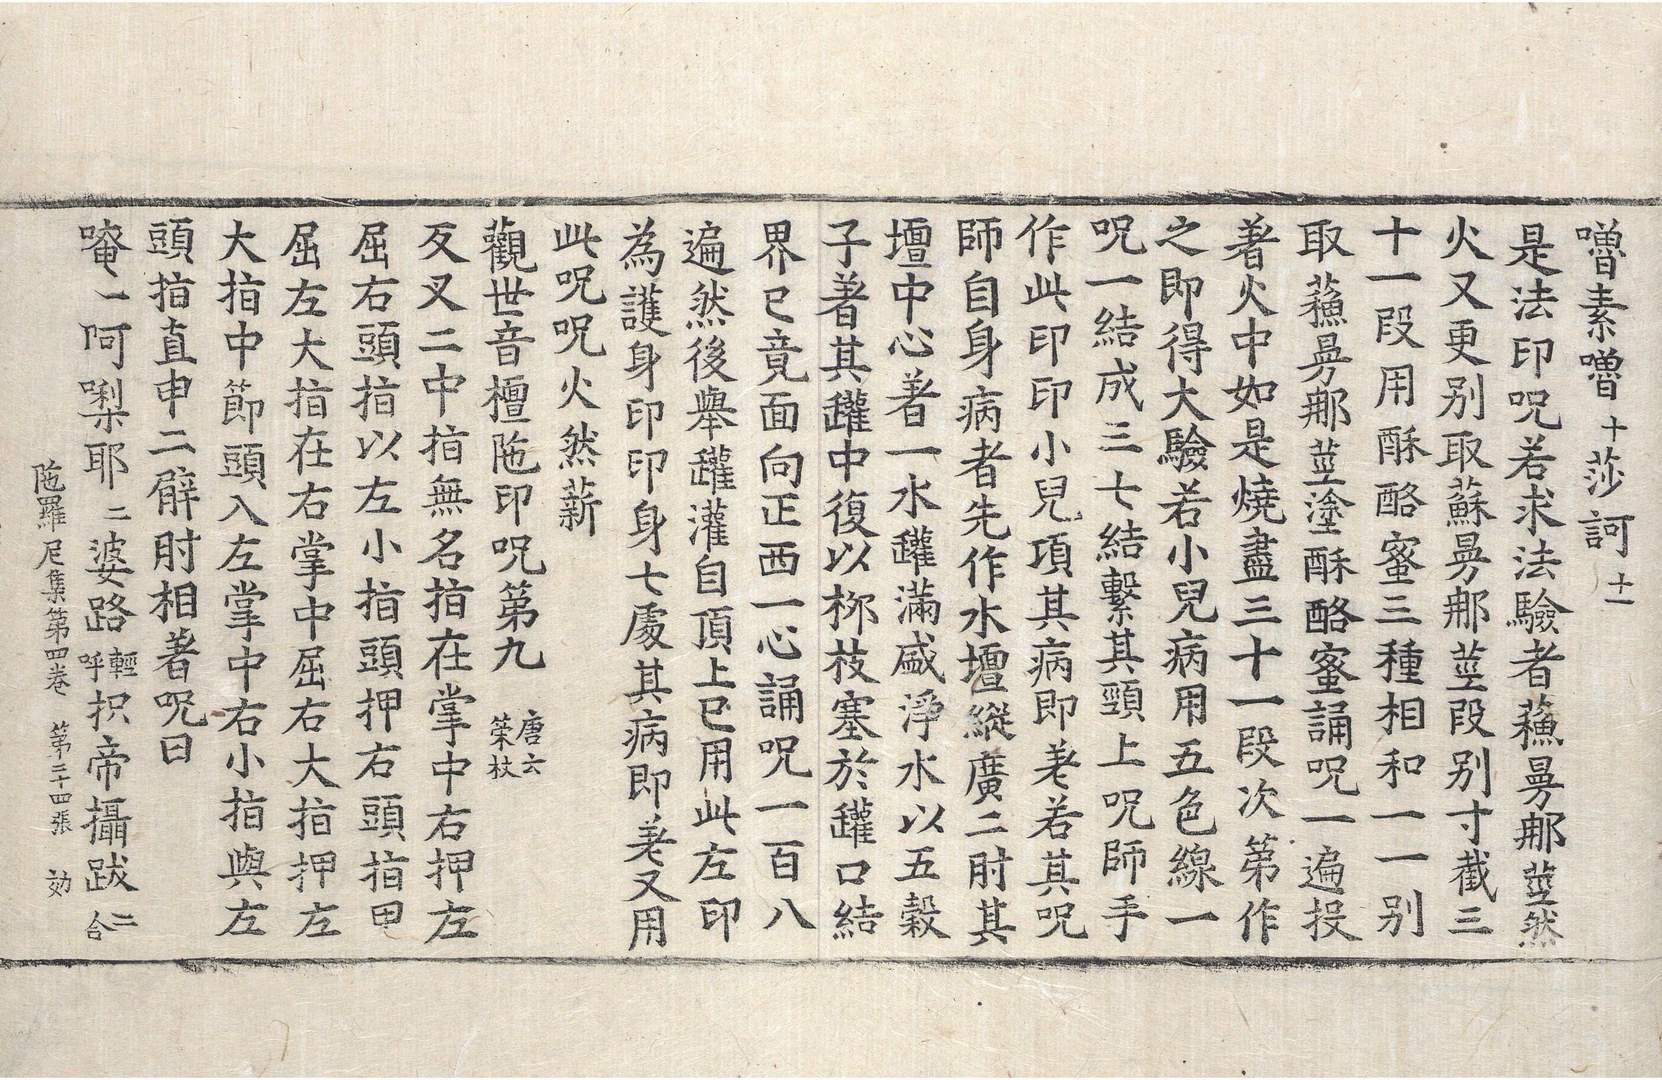 嚕素嚕十莎訶十一
是法印呪若求法驗者蘓㫄那莖然
火又更別取蘇㫄那莖段別寸截三
十一段用酥酪蜜三種相和一一別
取蘓㫄那莖塗酥酪蜜誦呪一遍投
著火中如是燒盡三十一段次第作
之即得大驗若小兒病用五色線一
呪一結成三七結繫其頸上呪師手
作此印印小兒項其病即差若其呪
師自身病者先作水壇縱廣二肘其
壇中心著一水罐滿盛淨水以五穀
子著其罐中復以栁枝塞於罐口結
界已竟面向正西一心誦呪一百八
遍然後舉罐灌自頂上已用此左印
為護身印印身七處其病即差又用
此呪呪火然薪
觀世音檀陁印呪第九唐云榮杖
反叉二中指無名指在掌中右押左
屈右頭指以左小指頭押右頭指甲
屈左大指在右掌中屈右大指押左
大指中節頭入左掌中右小指與左
頭指直申二臂肘相著呪曰
唵一阿㗚耶二婆路輕呼抧帝攝跋二合
陁羅尼集第四卷 第二十四張 効